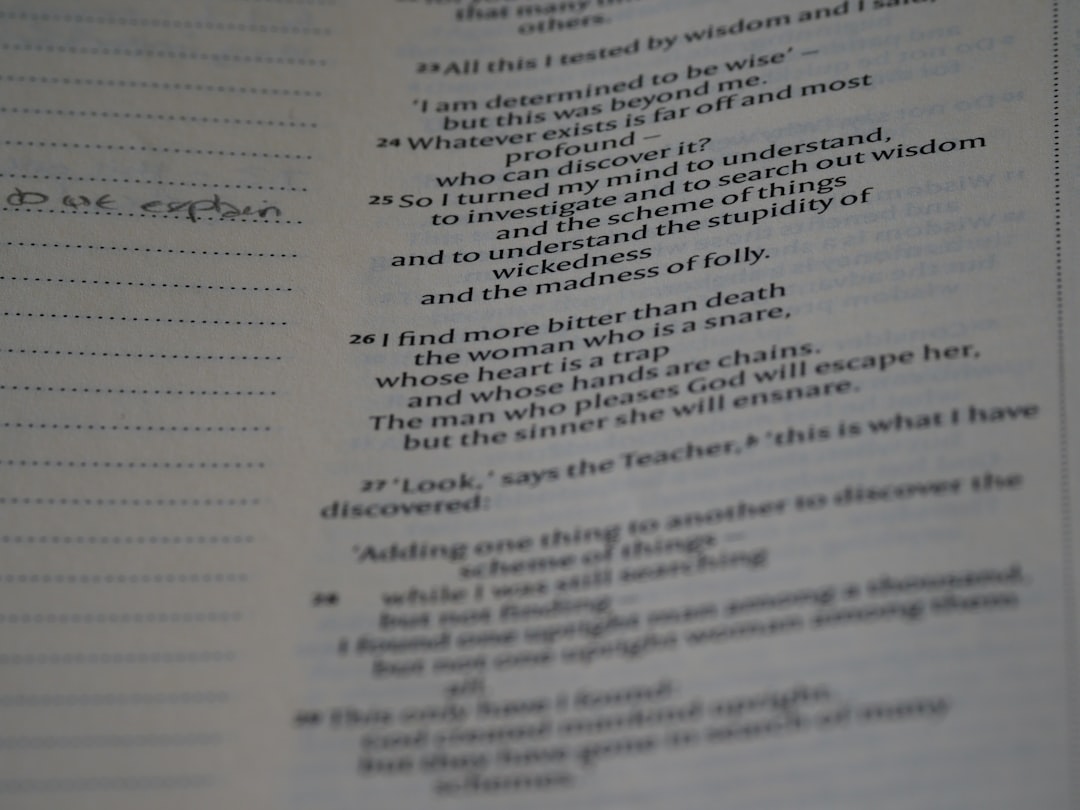 that many
others.
23 All this I tested by wisdom and I said,
'I am determined to be wise' –
but this was beyond me.
24 Whatever exists is far off and most
profound –
who can discover it?
25 So I turned my mind to understand,
to investigate and to search out wisdom
and the scheme of things
and to understand the stupidity of
wickedness
and the madness of folly.
26 I find more bitter than death
the woman who is a snare,
whose heart is a trap
and whose hands are chains.
The man who pleases God will escape her,
but the sinner she will ensnare.
27 'Look,' says the Teacher,b 'this is what I have
discovered:
'Adding one thing to another to discover the
scheme of things –
28 while I was still searching
but not finding –
I found one upright man among a thousand,
but not one upright woman among them
all.
29 This only have I found:
God created mankind upright,
but they have gone in search of many
schemes.'
do we explain